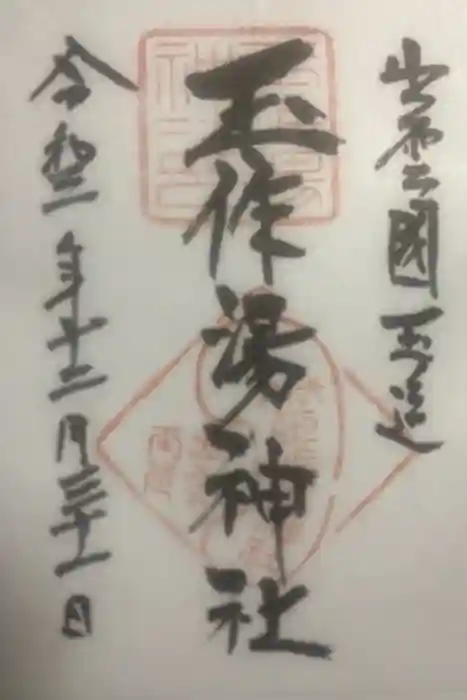 出雲国玉造
玉作湯神社
令和二年十二月三十一日